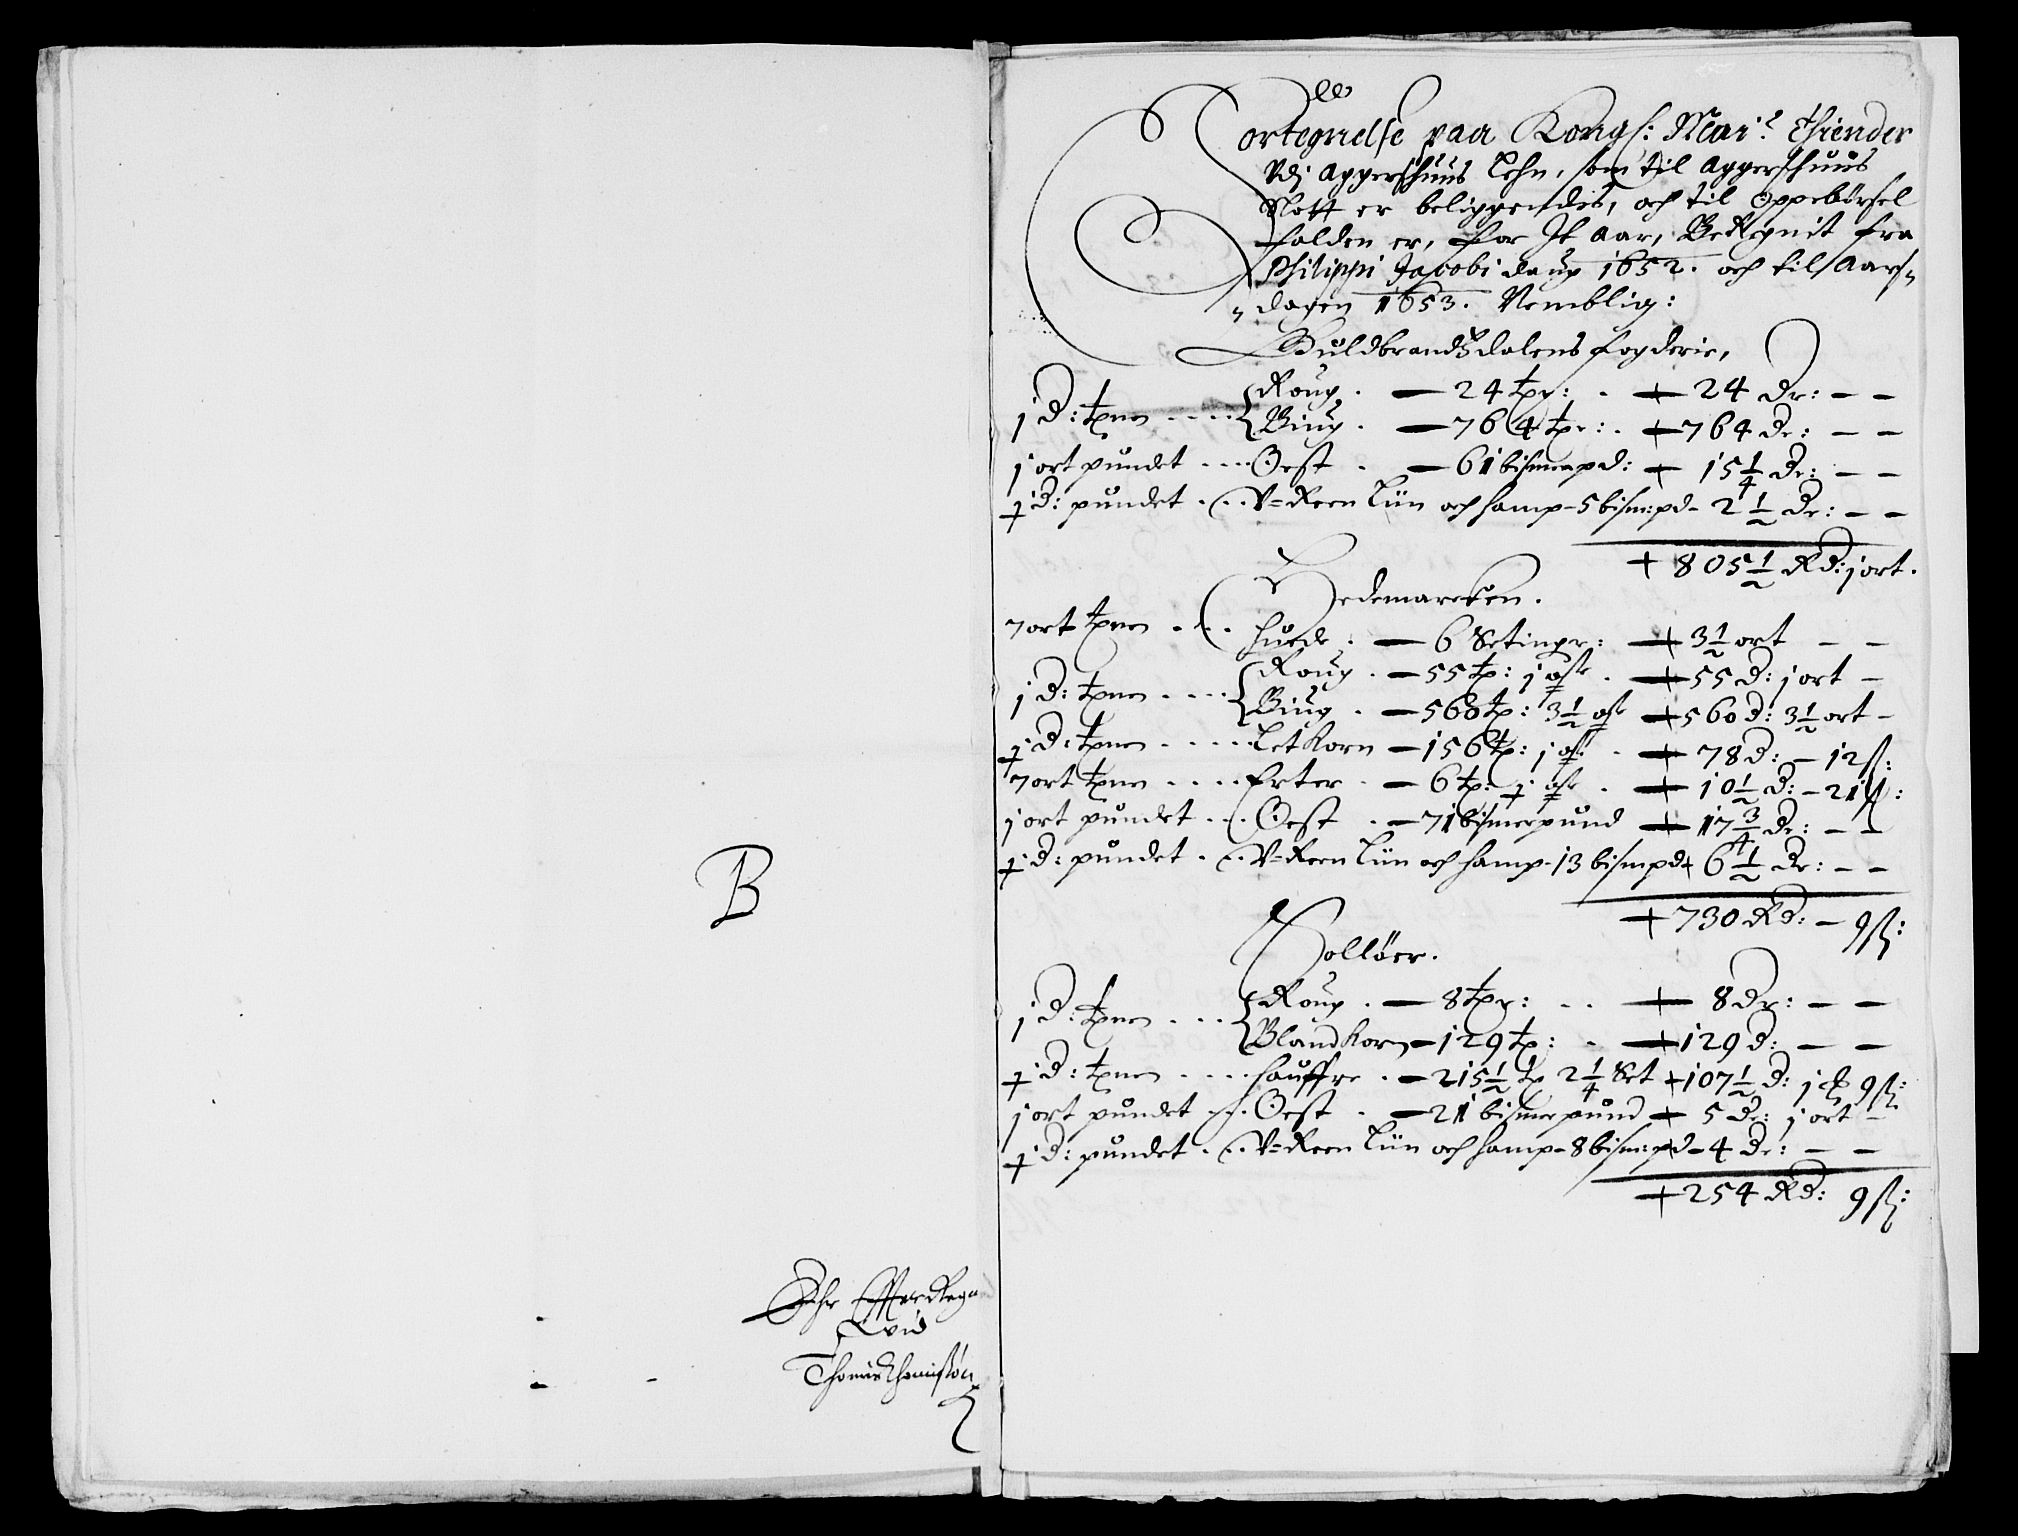 B
Thomis Thomisøn
Fortegnelse paa Kongl: Mai:t Thiender
Vdj Aggershuus Lehn, som til Aggershuus
Slott er beliggendis, och til Oppebørsel
falden er, for Jt Aar, Beregnit fra
Philippi Jacobi daug 1652. och til Aars„
„dagen 1653. Nemblig:
Guldbrandsdalens fogderie,
j d: tønen { Roug. — 24 tpr: — 24 dr: — —
Biug. — 764 tpr: — 764 dr: — —
j ort pundet Oest — 61 bismerpd: — 15 1/4 dr: — —
½ d: pundet V-Reen Liin och hamp – 5 bism:pd – 2 ½ dr: — —
805 ½ Rd: j ort.
Hedemarcken.
7 ort tønen huede. — 6 Setinger: — 3 ½ ort — —
j d: tønen { Roug. — 55 tp: j — 55 d: j ort —
Biug. — 560 tp: 3 ½ — 560 d: 3 ½ ort —
½ d: tønen Letkorn — 156 tp: j — 78 d: — 12 ß:
7 ort tønen Erter — 6 tp: ½ — 10 ½ d: — 21 ß:
j ort pundet Oest — 71 bismerpund — 17 3/4 dr: — —
½ d: pundet V-Reen Liin och hamp – 13 bismpd 6 ½ dr: — —
730 Rd: — 9 ß:
Solløer.
j d: tønen { Roug. — 8 tpr: — 8 dr: — —
Blandkorn — 129 tp: — 129 d: — —
½ d: tønen hauffre. — 215 ½ tp 2 1/4 Set 107 ½ d: j 9 ß:
j ort pundet Oest — 21 bismerpund — 5 dr: j ort —
½ d: pundet V-Reen Liin och hamp – 8 bism:pd – 4 dr: — —
254 Rd: 9 ß: